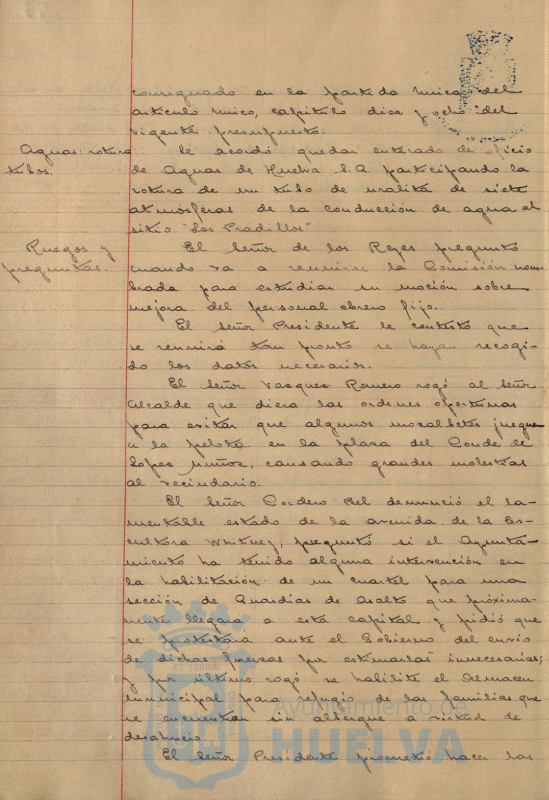 consignado en la partida única del
artículo único, capítulo diez y ocho del
vigente presupuesto.
Aguas: rotura
tubos.
Se acordó quedar enterado de oficio
de Aguas de Huelva S.A participando la
rotura de un tubo de uralita de siete
atmósferas de la conducción de agua al
sitio "Los Pradillos"
Ruegos y
preguntas.
El Señor de los Reyes preguntó
cuando va a reunirse la Comisión nom-
brada para estudiar su moción sobre
mejora del personal obrero fijo.
El Señor Presidente le contestó que
se reunirá tan pronto se hayan recogi-
do los datos necesarios.
El Señor Vazquez Romero rogó al Señor
Alcalde que diera las ordenes oportunas
para evitar que algunos mozalbetes jueguen
a la pelota en la plaza del Conde de
Lopez Muñoz, causando grandes molestias
al vecindario.
El Señor Cordero Bel denunció el la-
mentable estado de la avenida de la Es-
cultora Whitney, preguntó si el Ayunta-
miento ha tenido alguna intervención en
la habilitación de un cuartel para una
sección de Guardias de Asalto que próxima-
mente llegará a esta capital y pidió que
se protestara ante el Gobierno del envio
de dichas fuerzas por estimarlas innecesarias;
y por último rogó se habilite el Almacen
municipal para refugio de las familias que
se encuentran sin albergue a virtud de
desahucio.
El Señor Presidente prometió hacer las
Ayuntamiento de
HUELVA